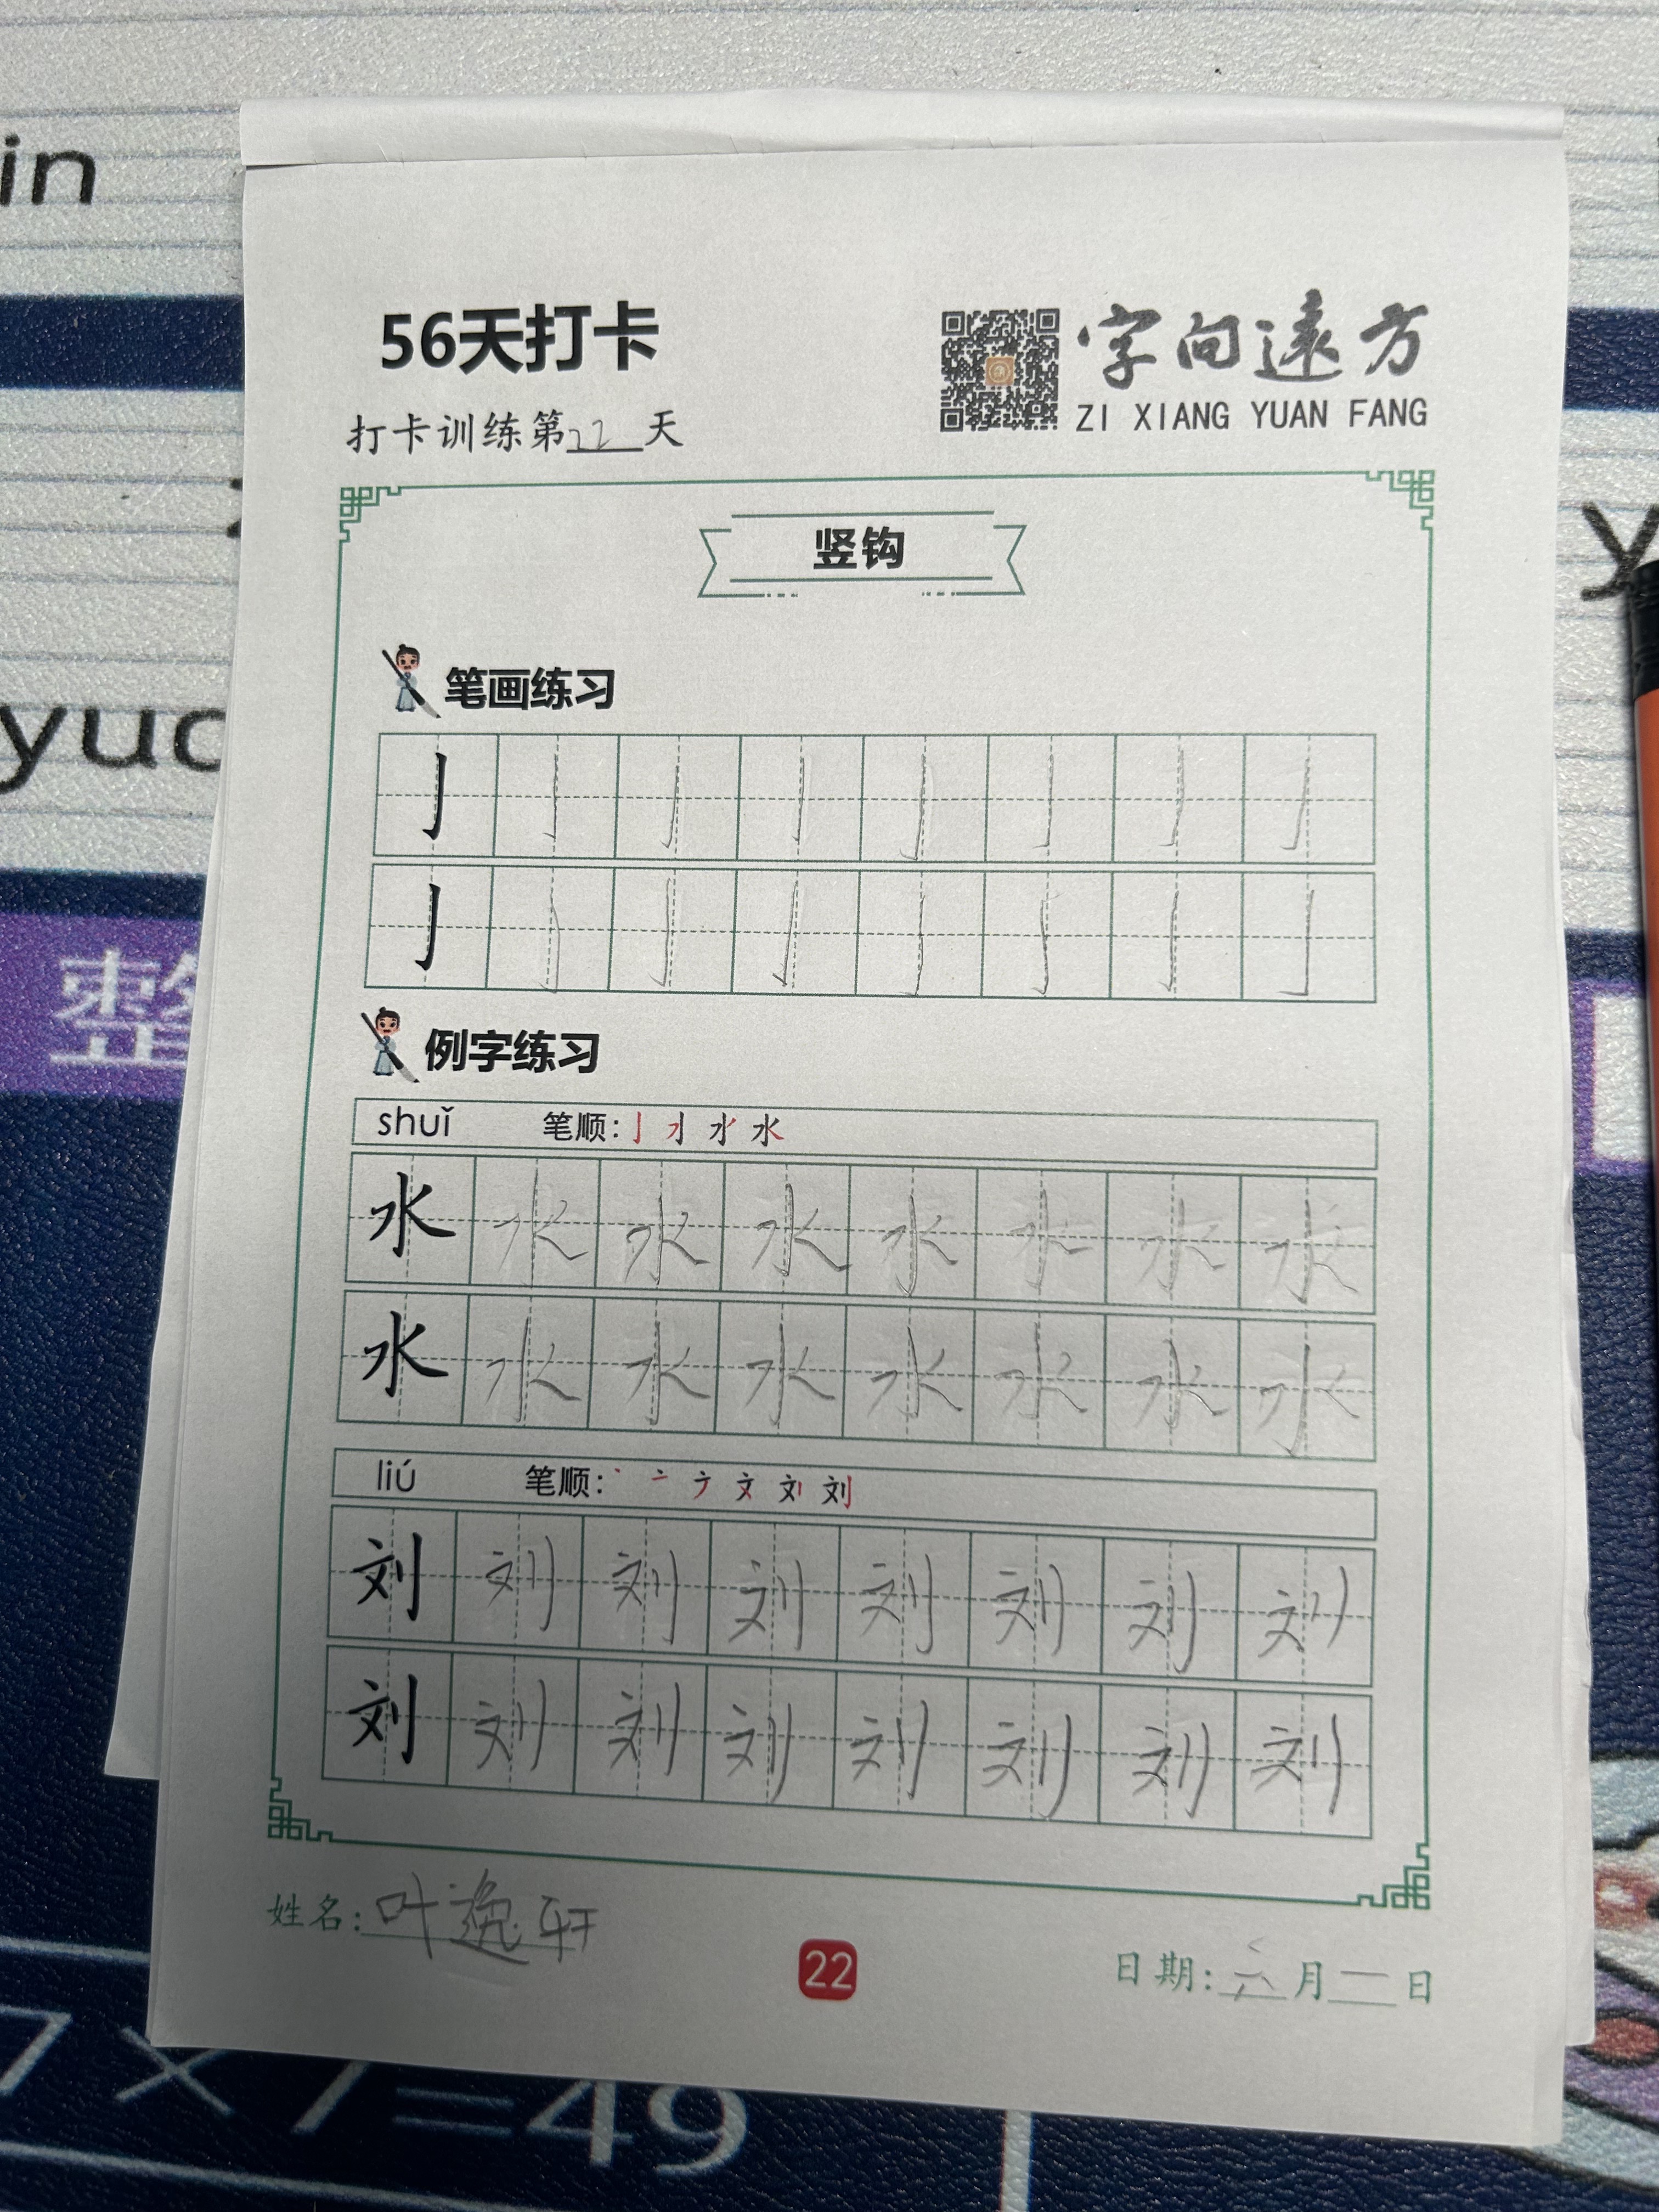 in
56天打卡
字向遠方
ZI XIANG YUAN FANG
打卡训练第22天
竖钩
笔画练习
亅 亅 亅 亅 亅 亅 亅 亅
亅 亅 亅 亅 亅 亅 亅 亅
例字练习
shuǐ 笔顺:
水 水 水 水 水 水 水 水
水 水 水 水 水 水 水 水
liú 笔顺:
刘 刘 刘 刘 刘 刘 刘 刘
刘 刘 刘 刘 刘 刘 刘 刘
姓名:叶逸轩
22
日期:六月一日
7×7=49